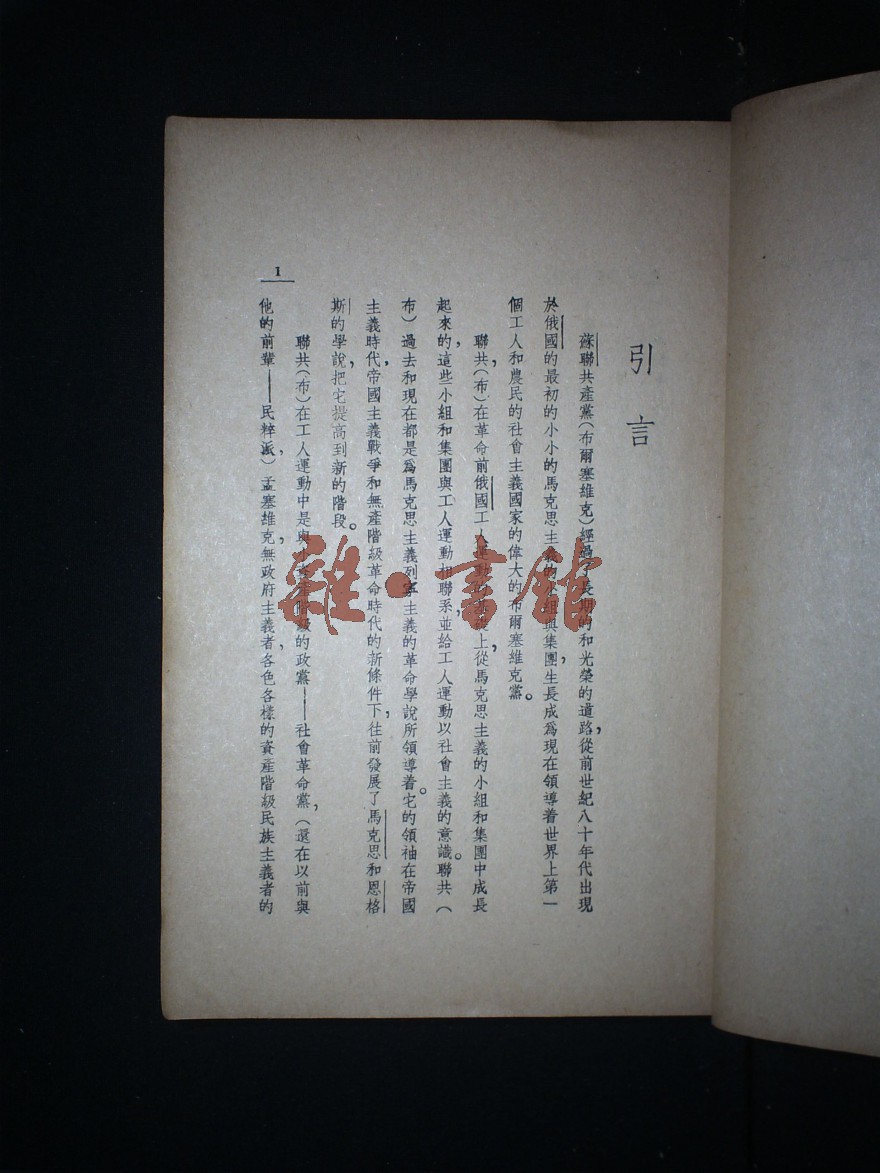 引言
蘇聯共產黨(布爾塞維克)經過了長期的和光榮的道路,從前世紀八十年代出現
於俄國的最初的小小的馬克思主義的小組與集團,生長成爲現在領導着世界上第一
個工人和農民的社會主義國家的偉大的布爾塞維克黨。
聯共(布)在革命前俄國工人運動的基礎上,從馬克思主義的小組和集團中成長
起來的,這些小組和集團與工人運動相聯系,並給工人運動以社會主義的意識。聯共(
布)過去和現在都是爲馬克思主義列寧主義的革命學說所領導着。它的領袖在帝國
主義時代,帝國主義戰爭和無產階級革命時代的新條件下,往前發展了馬克思和恩格
斯的學說,把它提高到新的階段。
聯共(布)在工人運動中是與小資產階級的政黨——社會革命黨,(還在以前與
他的前輩——民粹派)孟塞維克,無政府主義者,各色各樣的資產階級民族主義者的
1
雜·書館